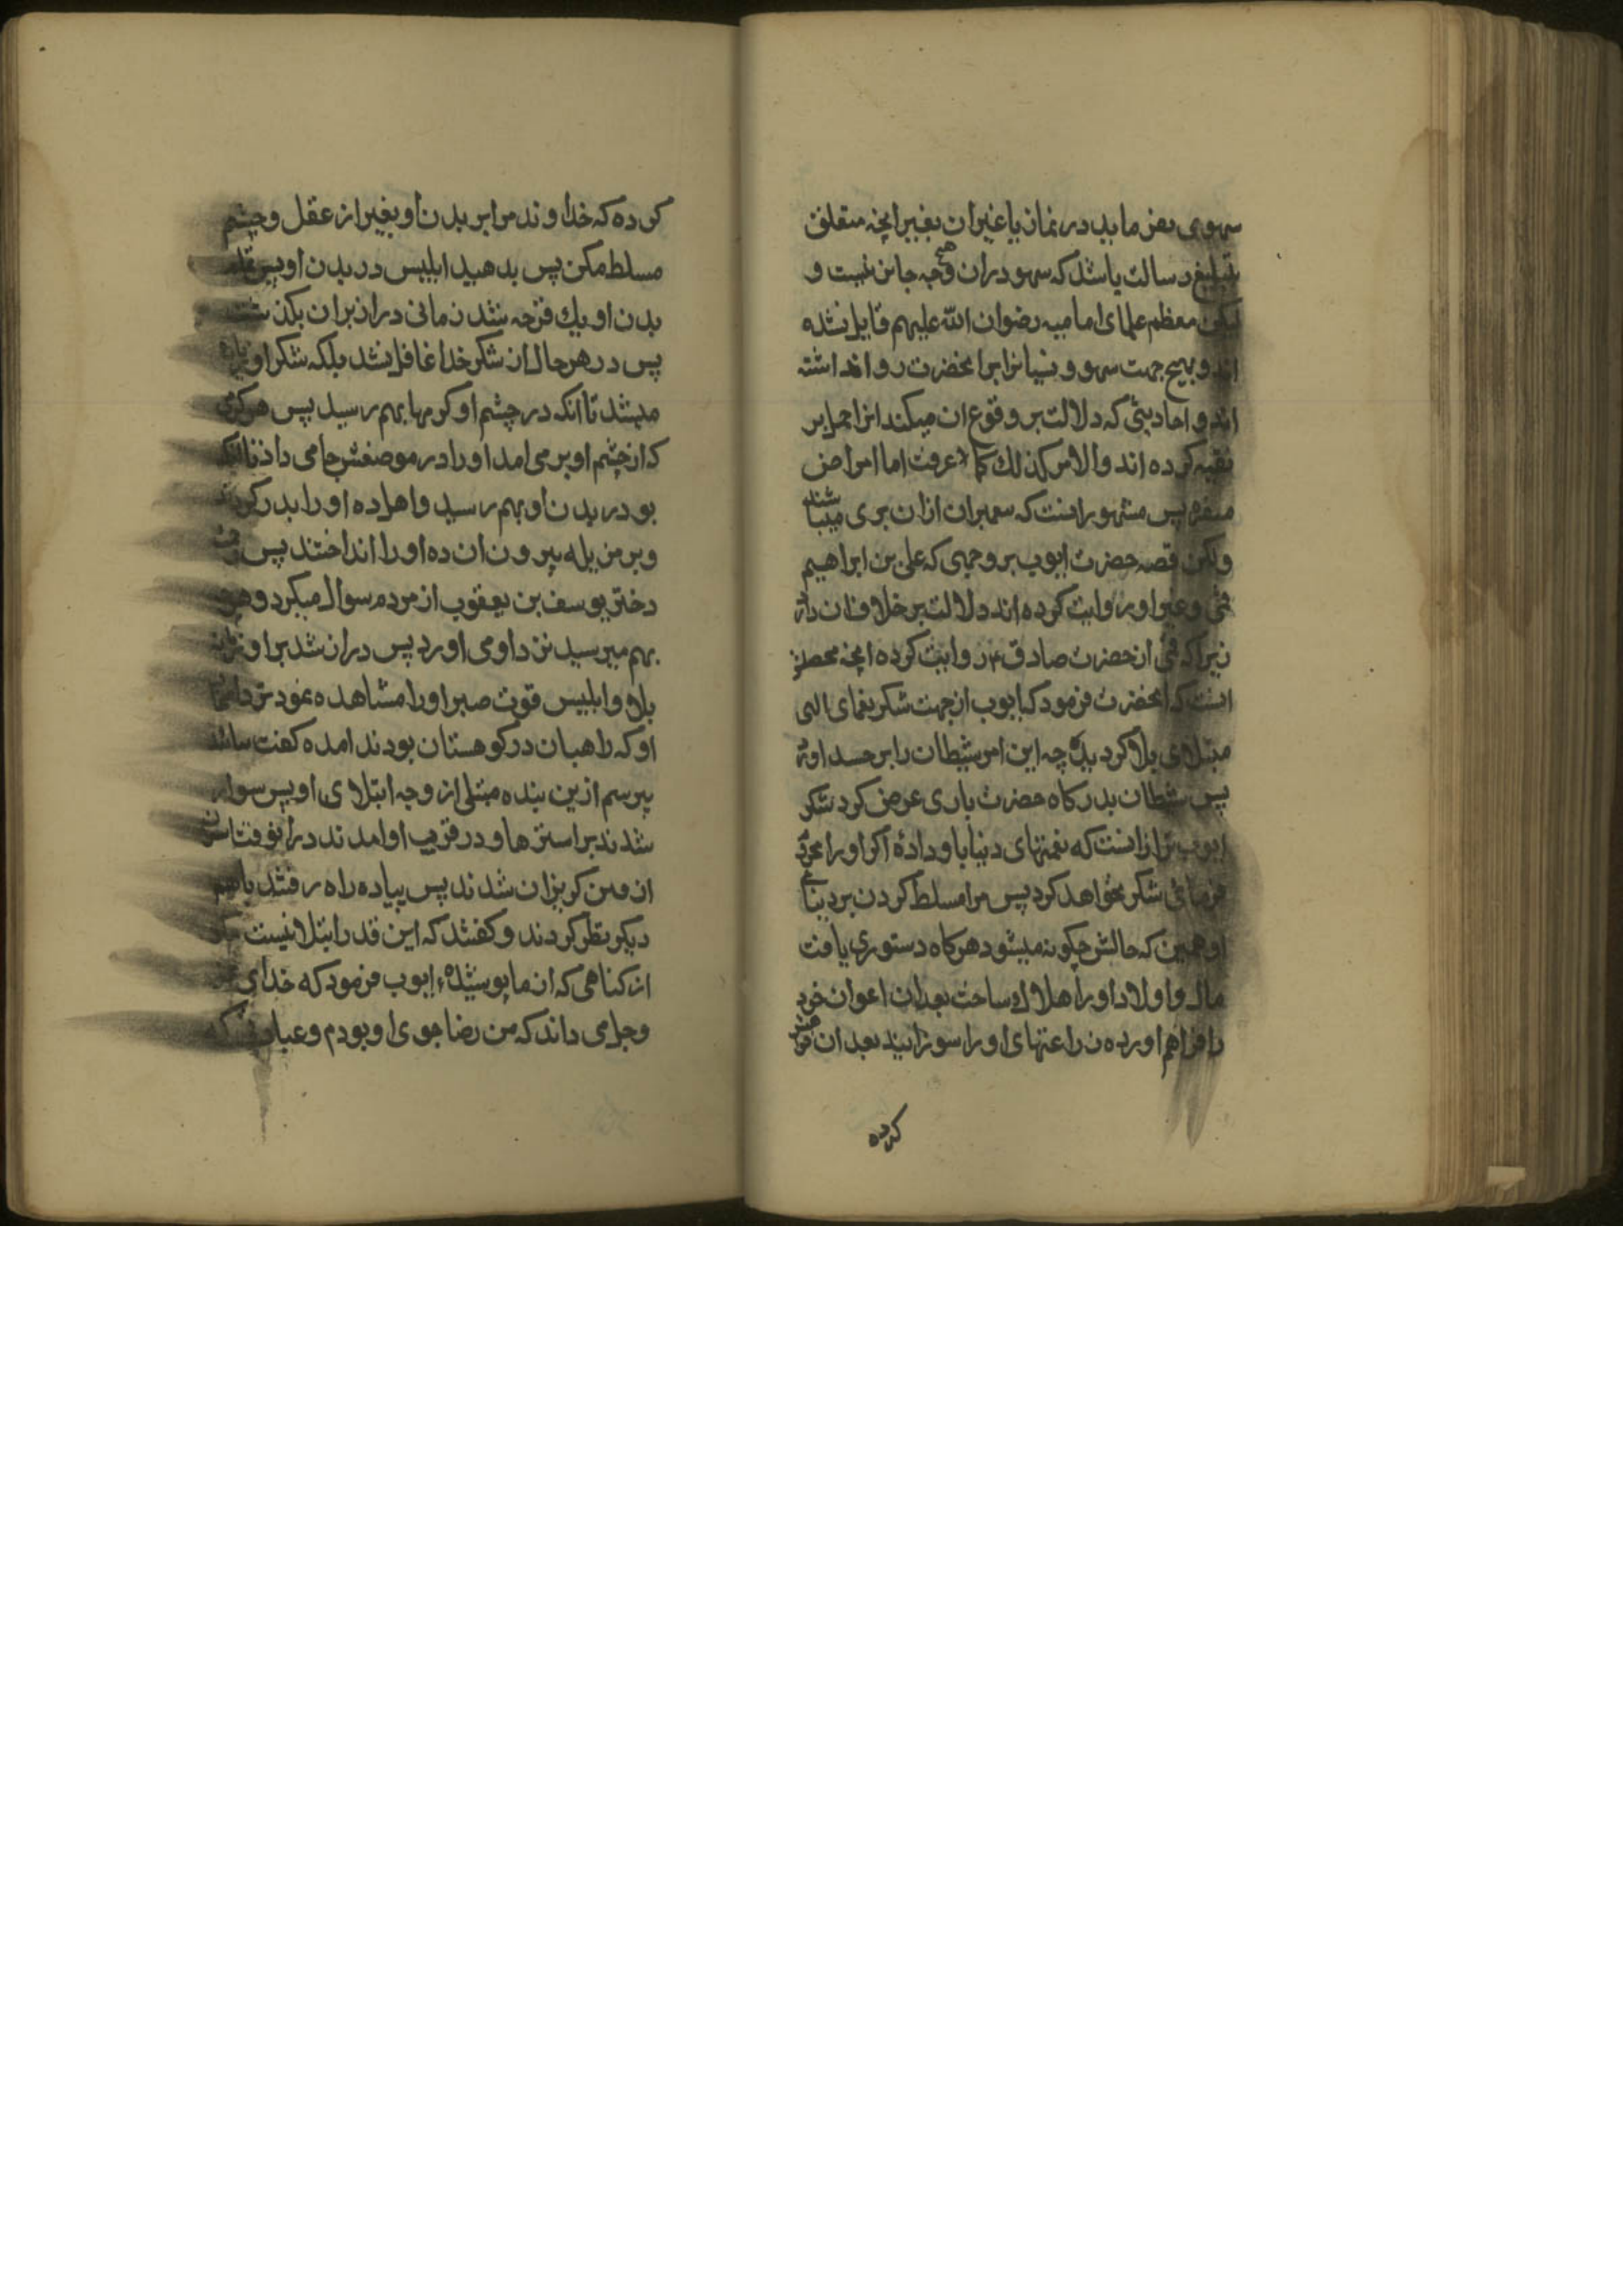 سهوی بفرماید در نماز یا غیر ان بغیر انچه متعلق
بتبلیغ رسالت باشد که سهو دران هیچ وجه جائز نیست و
لیکن معظم علمای امامیه رضوان الله علیهم قایل نشده
اند و بهیچ جهت سهو و نسیانرا بر انحضرت روا نداشته
اند و احادیثی که دلالت بر وقوع ان میکند انرا حمل بر
تقیه کرده اند والامر کذلک کما عرفت اما امراض
منفره پس مشهور انست که پیغمبران ازان بری میباشند
ولکن قصه حضرت ایوب بر وجهی که علی بن ابراهیم
قمی و غیر او روایت کرده اند دلالت بر خلاف ان دارد
زیرا که قمی از حضرت صادق ۴ روایت کرده انچه محصلش
انست که انحضرت فرمود که ایوب از جهت شکر نعمای الهی
مبتلای بلا کردید چه این امر شیطان را بر حسد اورد
پس شیطان بدرکاه حضرت باری عرض کرد شکر
ایوب ترا ازانست که نعمتهای دنیا باو دادهٔ اکر او را محروم
فرمائی شکر نخواهد کرد پس مرا مسلط کردن بر دنیای
او همین که حالش چکونه میشود هرکاه دستوری یافت
مال و اولاد او را هلاک ساخت بعد ازان اعوان خود
را فراهم اورده زراعتهای او را سوزانید بعد ازان عرض
کرده
کرده که خداوند مرا بر بدن او بغیر از عقل و چشم
مسلط مکن پس بدمید ابلیس در بدن او پس تمام
بدن او یک قرحه شد زمانی دراز بران بکذشت و
پس در هر حال از شکر خدا غافل نشد بلکه شکر او زیاده
میشد تا انکه در چشم او کرمها بهم رسید پس هر کرمی
که از چشم او بر می امد او را در موضعش جا می داد تا انکه
بو در بدن او بهم رسید و اهل ده او را بدر کردند
و بر مزبله بیرون ان ده او را انداختند پس زن
دختر یوسف بن یعقوب از مردم سوال میکرد و هرچه
بهم میرسید نزد او می اورد پس دراز شد بر او زمان
بلا و ابلیس قوت صبر او را مشاهده نمود نزد
او که راهبان در کوهستان بودند امده کفت بیائید
بپرسیم ازین بنده مبتلی از وجه ابتلای او پس سوار
شدند بر استرها و در قریب او امدند در انوقت
ازو می کریزان شدند پس پیاده راه رفتند با هم
دیکر نظر کردند و کفتند که این قدر ابتلا نیست مکر
از کناهی که از ما پوشیدهٔ ایوب فرمود که خدای عز
وجل می داند که من رضا جوی او بودم و عبادتی که